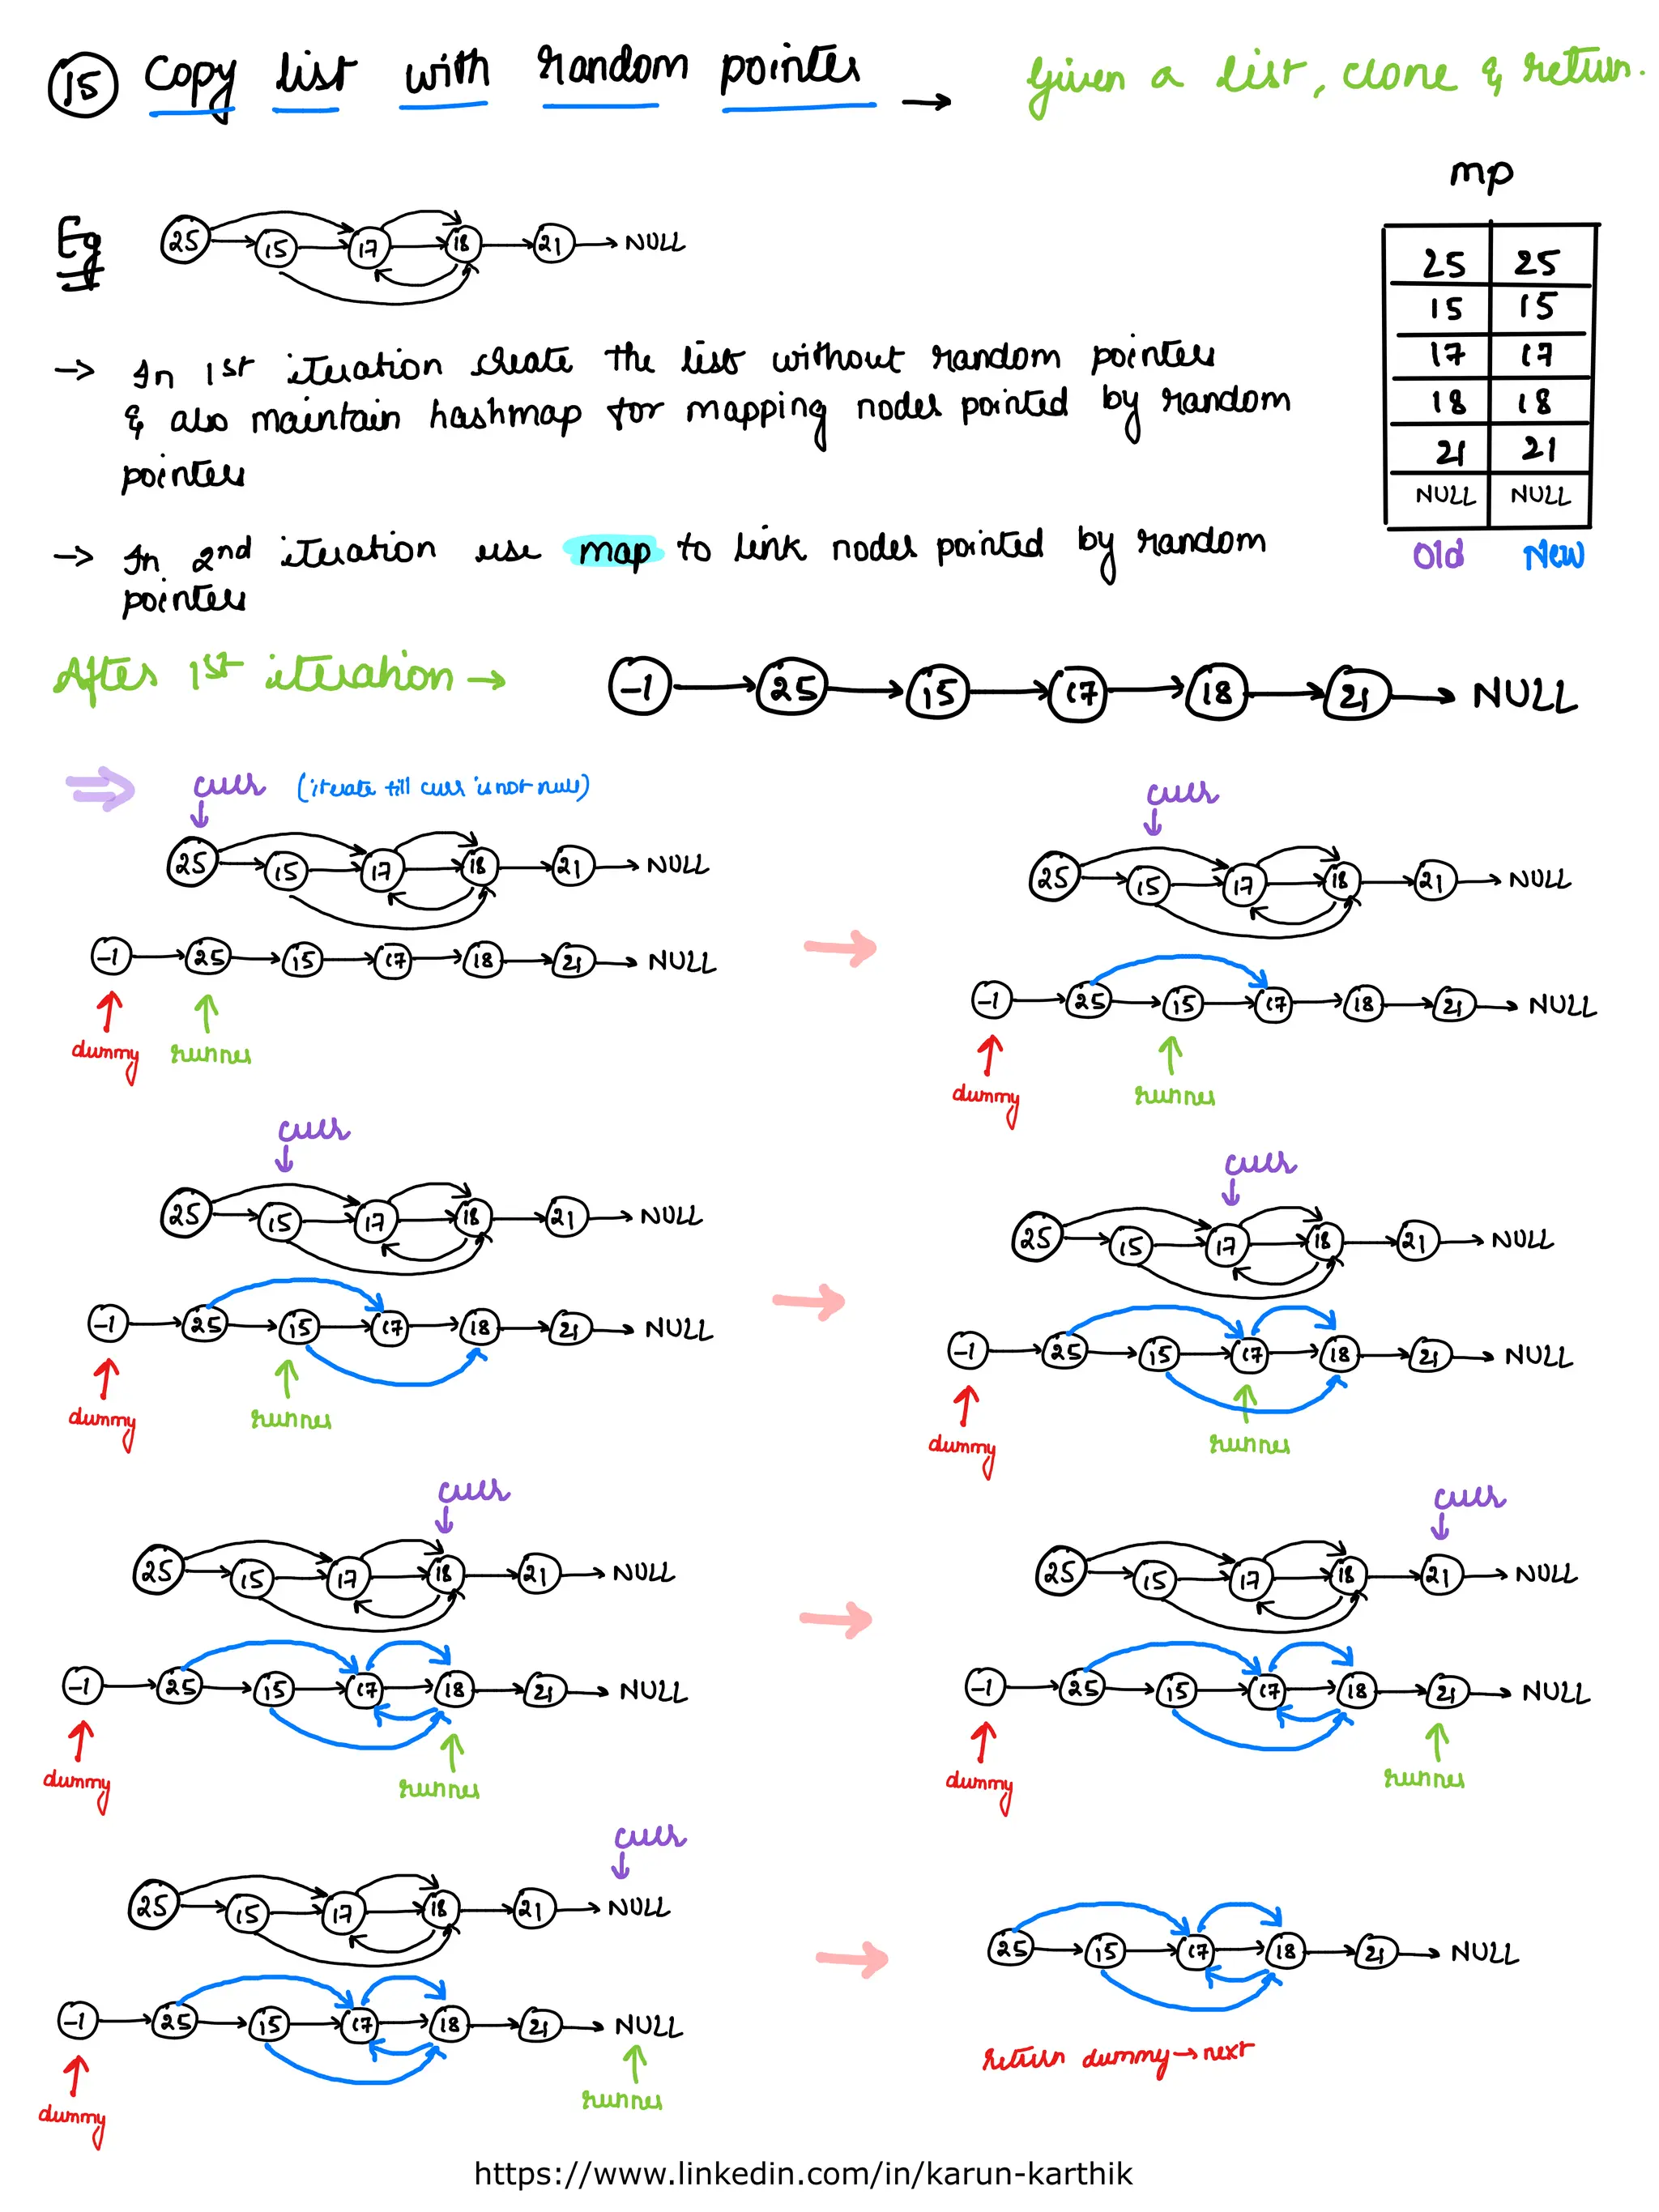 15 Copy list with random pointer → Given a list, clone & return.
mp
Eg 25 15 17 18 21 NULL
25 25
15 15
17 17
18 18
21 21
NULL NULL
Old New
→ In 1st iteration create the list without random pointers
& also maintain hashmap for mapping nodes pointed by random
pointers
→ In 2nd iteration use map to link nodes pointed by random
pointers
After 1st iteration → -1 25 15 17 18 21 NULL
curr (iterate till curr is not null)
25 15 17 18 21 NULL
-1 25 15 17 18 21 NULL
dummy runner
curr
25 15 17 18 21 NULL
-1 25 15 17 18 21 NULL
dummy runner
curr
25 15 17 18 21 NULL
-1 25 15 17 18 21 NULL
dummy runner
curr
25 15 17 18 21 NULL
-1 25 15 17 18 21 NULL
dummy runner
curr
25 15 17 18 21 NULL
-1 25 15 17 18 21 NULL
dummy runner
curr
25 15 17 18 21 NULL
-1 25 15 17 18 21 NULL
dummy runner
curr
25 15 17 18 21 NULL
-1 25 15 17 18 21 NULL
dummy runner
25 15 17 18 21 NULL
return dummy → next
https://www.linkedin.com/in/karun-karthik